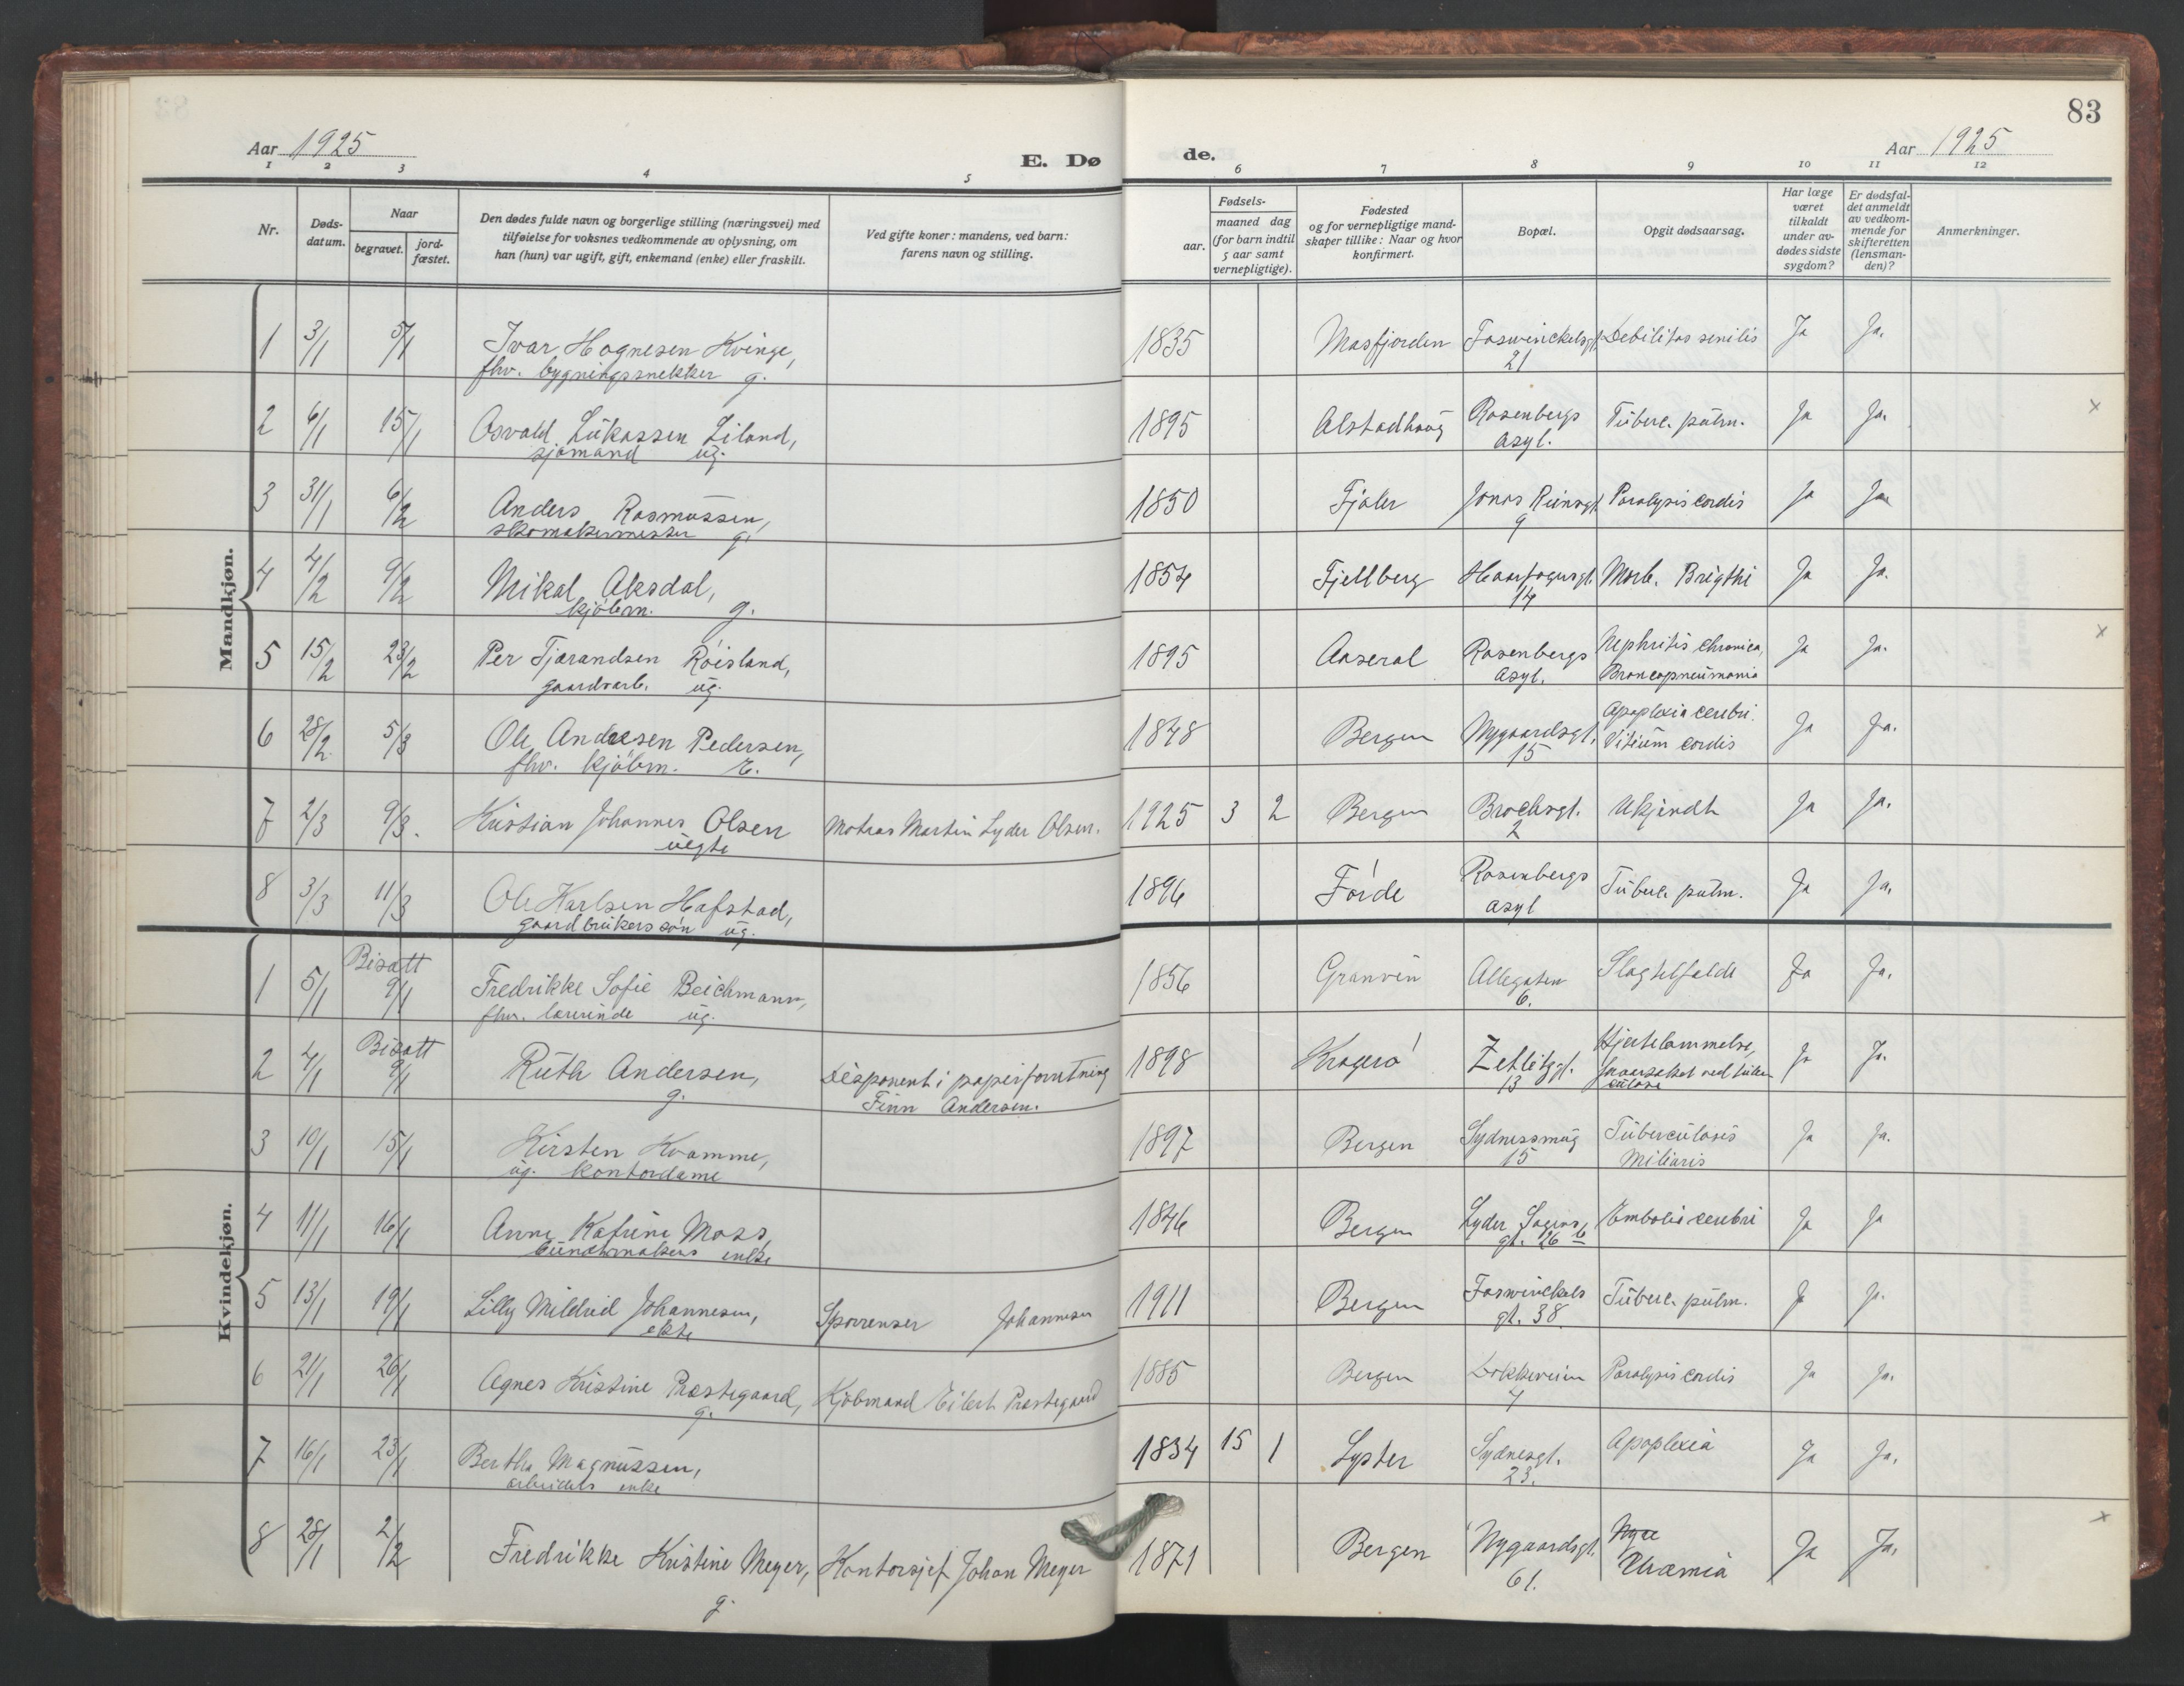 83
Aar 1925
E. Døde.
Aar 1925
1 2 3 4 5 6 7 8 9 10 11 12
Nr.
Døds-
datum.
Naar
begravet.
jord-
fæstet.
Den dødes fulde navn og borgerlige stilling (næringsvei) med
tilføielse for voksnes vedkommende av oplysning, om
han (hun) var ugift, gift, enkemand (enke) eller fraskilt.
Ved gifte koner: mandens, ved barn:
farens navn og stilling.
Fødsels-
aar.
maaned dag
(for barn indtil
5 aar samt
vernepligtige).
Fødested
og for vernepligtige mand-
skaper tillike: Naar og hvor
konfirmert.
Bopæl.
Opgit dødsaarsag.
Har læge
været
tilkaldt
under av-
dødes sidste
sygdom?
Er dødsfal-
det anmeldt
av vedkom-
mende for
skifteretten
(lensman-
den)?
Anmerkninger.
Mandkjøn.
1 3/1 5/1 Ivar Hognesen Kvinge, 1835 Masfjorden Foswinckelsgt. Debilitas senilis Ja Ja.
fhv. bygningssnekker g. 21
2 6/1 15/1 Osvald Lukassen Liland, 1895 Alstadhaug Rosenbergs Tuberc. pulm. Ja Ja. x
sjømand ug. Asyl.
3 31/1 6/2 Anders Rasmussen, 1850 Fjaler Jonas Reinsgt. Paralysis cordis Ja Ja
skomakermester g. 9
4 4/2 9/2 Mikal Aksdal, 1854 Fjellberg Haarfagersgt. Morb. Brigthi Ja Ja.
kjøbm. g. 14
5 15/2 23/2 Per Tjarandsen Røisland, 1895 Aaseral Rosenbergs Nephritis chronica, Ja Ja. x
gaardsarb. ug. Asyl. Broncopneumonia
6 28/2 5/3 Ole Andresen Pedersen, 1848 Bergen Nygaardsgt. Apoplexia cerebri. Ja Ja.
fhv. kjøbm. E. 15 Vitium cordis
7 2/3 9/3. Kristian Johannes Olsen Matros Martin Lyder Olsen. 1925 3 2 Bergen Brochsgt. Ukjendt Ja Ja.
uegte 2
8 3/3 11/3 Ole Karlsen Hafstad, 1896 Førde Rosenbergs Tuberc. pulm. Ja Ja.
gaardbrukers søn ug. Asyl
Kvindekjøn.
1 5/1 Bisatt 9/1 Fredrikke Sofie Beichmann, 1856 Granvin Allegaten Slagtilfælde Ja Ja.
fhv. lærerinde ug. 6.
2 4/1 Bisatt 9/1 Ruth Andersen, Disponent i papirforretning 1898 Kragerø Zetlitzgt. Hjertelammelse, Ja Ja.
g. Finn Andersen. 13 foraarsaket ved tuber-
culose
3 10/1 15/1 Kirsten Kvamme, 1897 Bergen Sydnessmug Tuberculosis Ja Ja.
ug. kontordame 15 Miliaris
4 11/1 16/1 Anne Katrine Moss, 1846 Bergen Lyder Sagens Embolia cerebri Ja Ja
bundtmakers enke gt. 26 b
5 13/1 19/1 Lilly Mildrid Johannesen, Sporrenser Johannesen 1911 Bergen Foswinckels Tuberc. pulm. Ja Ja.
ekte gt. 38
6 21/1 26/1 Agnes Kristine Prestegaard, Kjøbmand Eilert Prestegaard 1885 Bergen Dokkeveien Paralysis cordis Ja Ja.
g. 4
7 16/1 23/1 Bertha Magnussen, 1834 15 1 Lyster Sydnesgt. Apoplexia Ja Ja.
arbeiders enke 23.
8 28/1 2/2 Fredrikke Kristine Meyer, Kontorsjef Johan Meyer 1871 Bergen Nygaardsgt. Uræmia Ja Ja. x
g. 61.